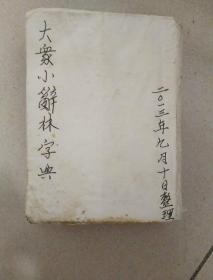 大眾小辭林字典
二〇一三年九月十日整理